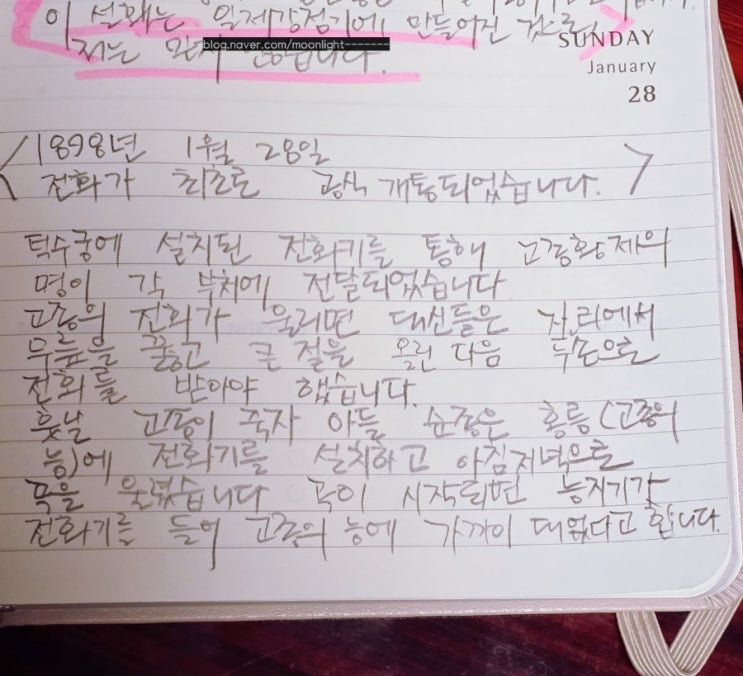 이 설화는 일제강점기에 만들어진 것으로
저는 알고 있습니다.
blog.naver.com/moonlight-------
SUNDAY
January
28
<1898년 1월 28일
전화가 최초로 공식 개통되었습니다.>
덕수궁에 설치된 전화기를 통해 고종황제의
명이 각 부처에 전달되었습니다
고종의 전화가 울리면 대신들은 자리에서
무릎을 꿇고 큰 절을 올린 다음 두손으로
전화를 받아야 했습니다.
훗날 고종이 죽자 아들 순종은 홍릉(고종의
능)에 전화기를 설치하고 아침저녁으로
곡을 울렸습니다 곡이 시작되면 능지기가
전화기를 들어 고종의 능에 가까이 대었다고 합니다.